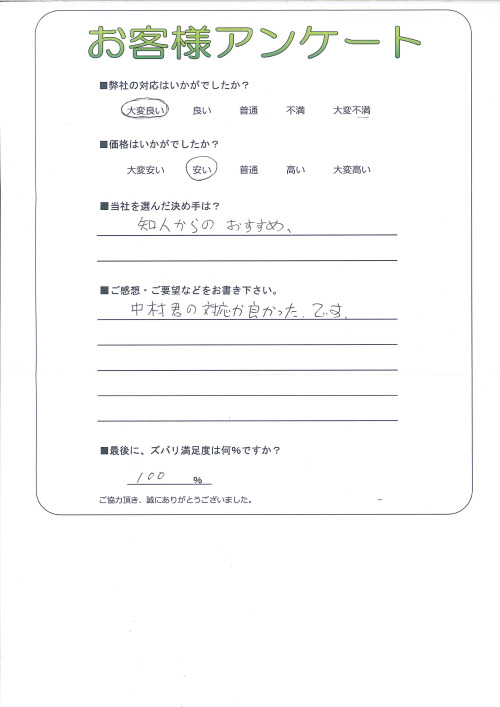 お客様アンケート
■弊社の対応はいかがでしたか？
大変良い 良い 普通 不満 大変不満
■価格はいかがでしたか？
大変安い 安い 普通 高い 大変高い
■当社を選んだ決め手は？
知人からの おすすめ、
■ご感想・ご要望などをお書き下さい。
中村君の対応が良かった.です.
■最後に、ズバリ満足度は何%ですか？
100 %
ご協力頂き、誠にありがとうございました。